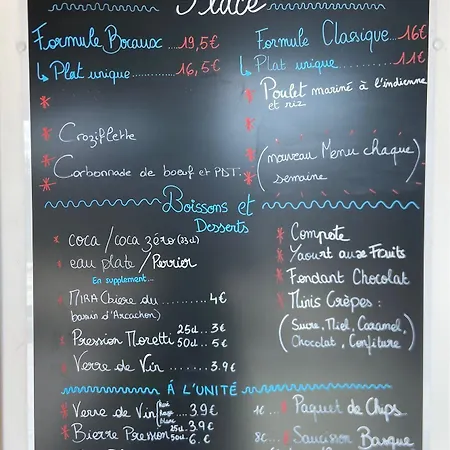 Place
Formule Bocaux ...19,5€
↳ Plat unique .......16,5€
Croziflette
Carbonnade de boeuf et PDT.
Formule Classique....16€
↳ Plat unique............11€
Poulet mariné à l'indienne
et riz
(nouveau Menu chaque
semaine)
Boissons et
Desserts
coca / coca zéro (33cl)
eau plate / Perrier
En supplement...
MIRA (biere du ........ 4€
bassin d'Arcachon)
Pression Moretti 25cl.. 3€
50cl.. 5€
Verre de Vin ....... 3.9€
Compote
Yaourt aux Fruits
Fondant Chocolat
Minis Crêpes :
(Sucre, Miel, Caramel,
Chocolat, Confiture)
À L'UNITÉ
Verre de Vin ....3.9€
Bierre Pression 25cl..3.9€
50cl..6.€
1€... Paquet de Chips
8€... Saucisson Basque